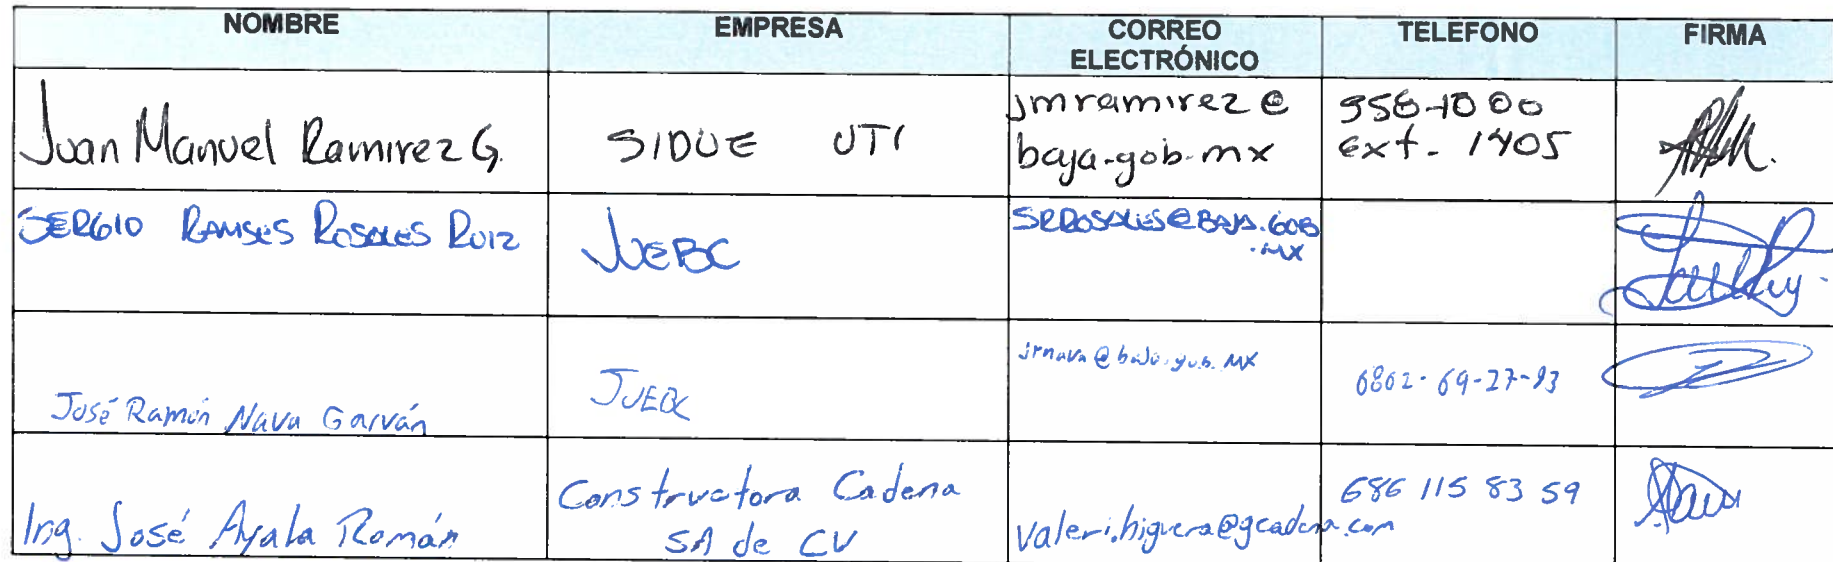 NOMBRE EMPRESA CORREO ELECTRÓNICO TELEFONO FIRMA
Juan Manuel Ramirez G. SIDUE UTI jmramirez@
baja.gob.mx 558-1000
ext. 1405
SERGIO RAMSES ROSALES RUIZ JUEBC SRROSALES@BAJA.GOB
.MX
José Ramón Nava Garván JUEBC jrnava@baja.gob.mx 6862-69-27-93
Ing. José Ayala Román Constructora Cadena
SA de CV valeri.higuera@gcadena.com 686 115 83 59